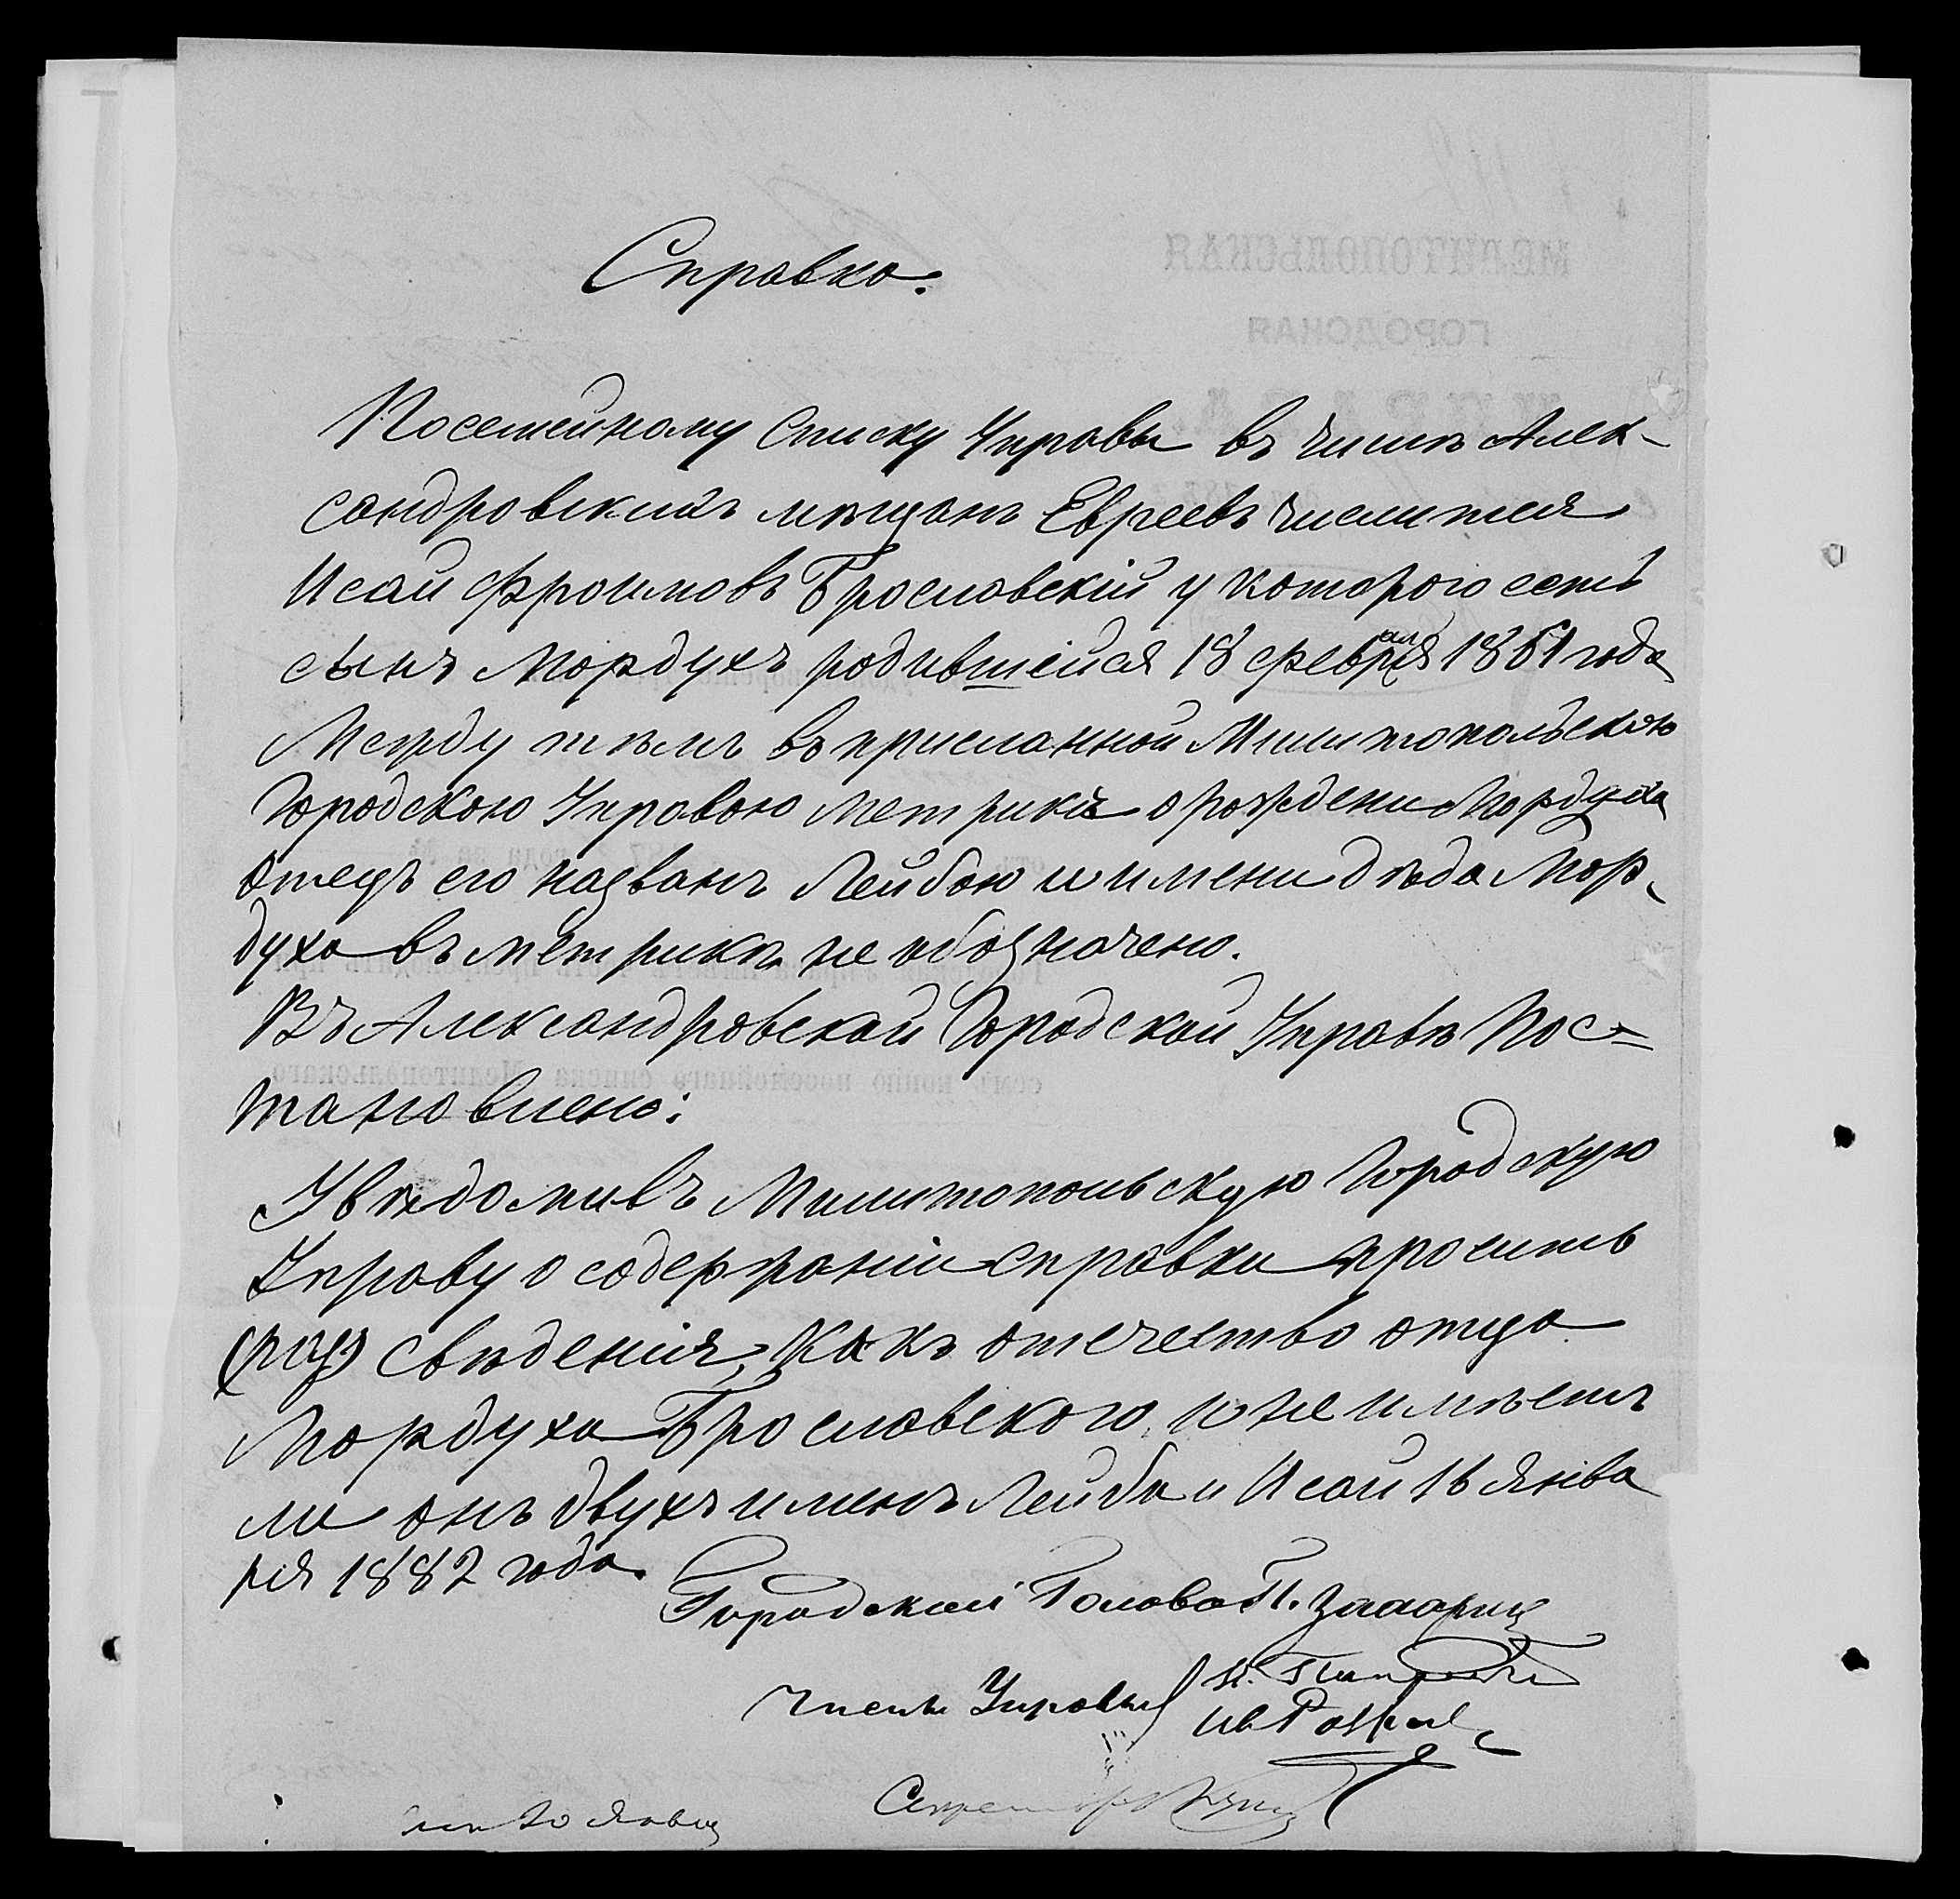 Справка.
Посемейному Списку Управы въ числѣ Алек-
сандровскихъ мѣщанъ Евреевъ числится
Исай Фроимовъ Браславскій у котораго есть
сынъ Мордухъ родившейся 18 февраля 1861 года
Между тѣмъ въ присланной Милитопольскою
Городскою Управою метрикѣ о рождени Мордуха
отецъ его названъ Лейбою и имени дѣда Мор-
духа въ метрикѣ не обозначено.
Въ Александровской Городской Управѣ Пос=
тановлено:
Увѣдомивъ Милитопольскую Городскую
Управу о содержаніи справки просить
свѣденія, какъ отечество отца
Мордуха Браславского и не имѣетъ
ли онъ двухъ именъ Лейба и Исай 16 Янва
ря 1882 года.
Городской Голова П.
Члены Управы
Ив
Секретарь
МЕЛИТОПОЛЬСКАЯ
ГОРОДСКАЯ
УПРАВА